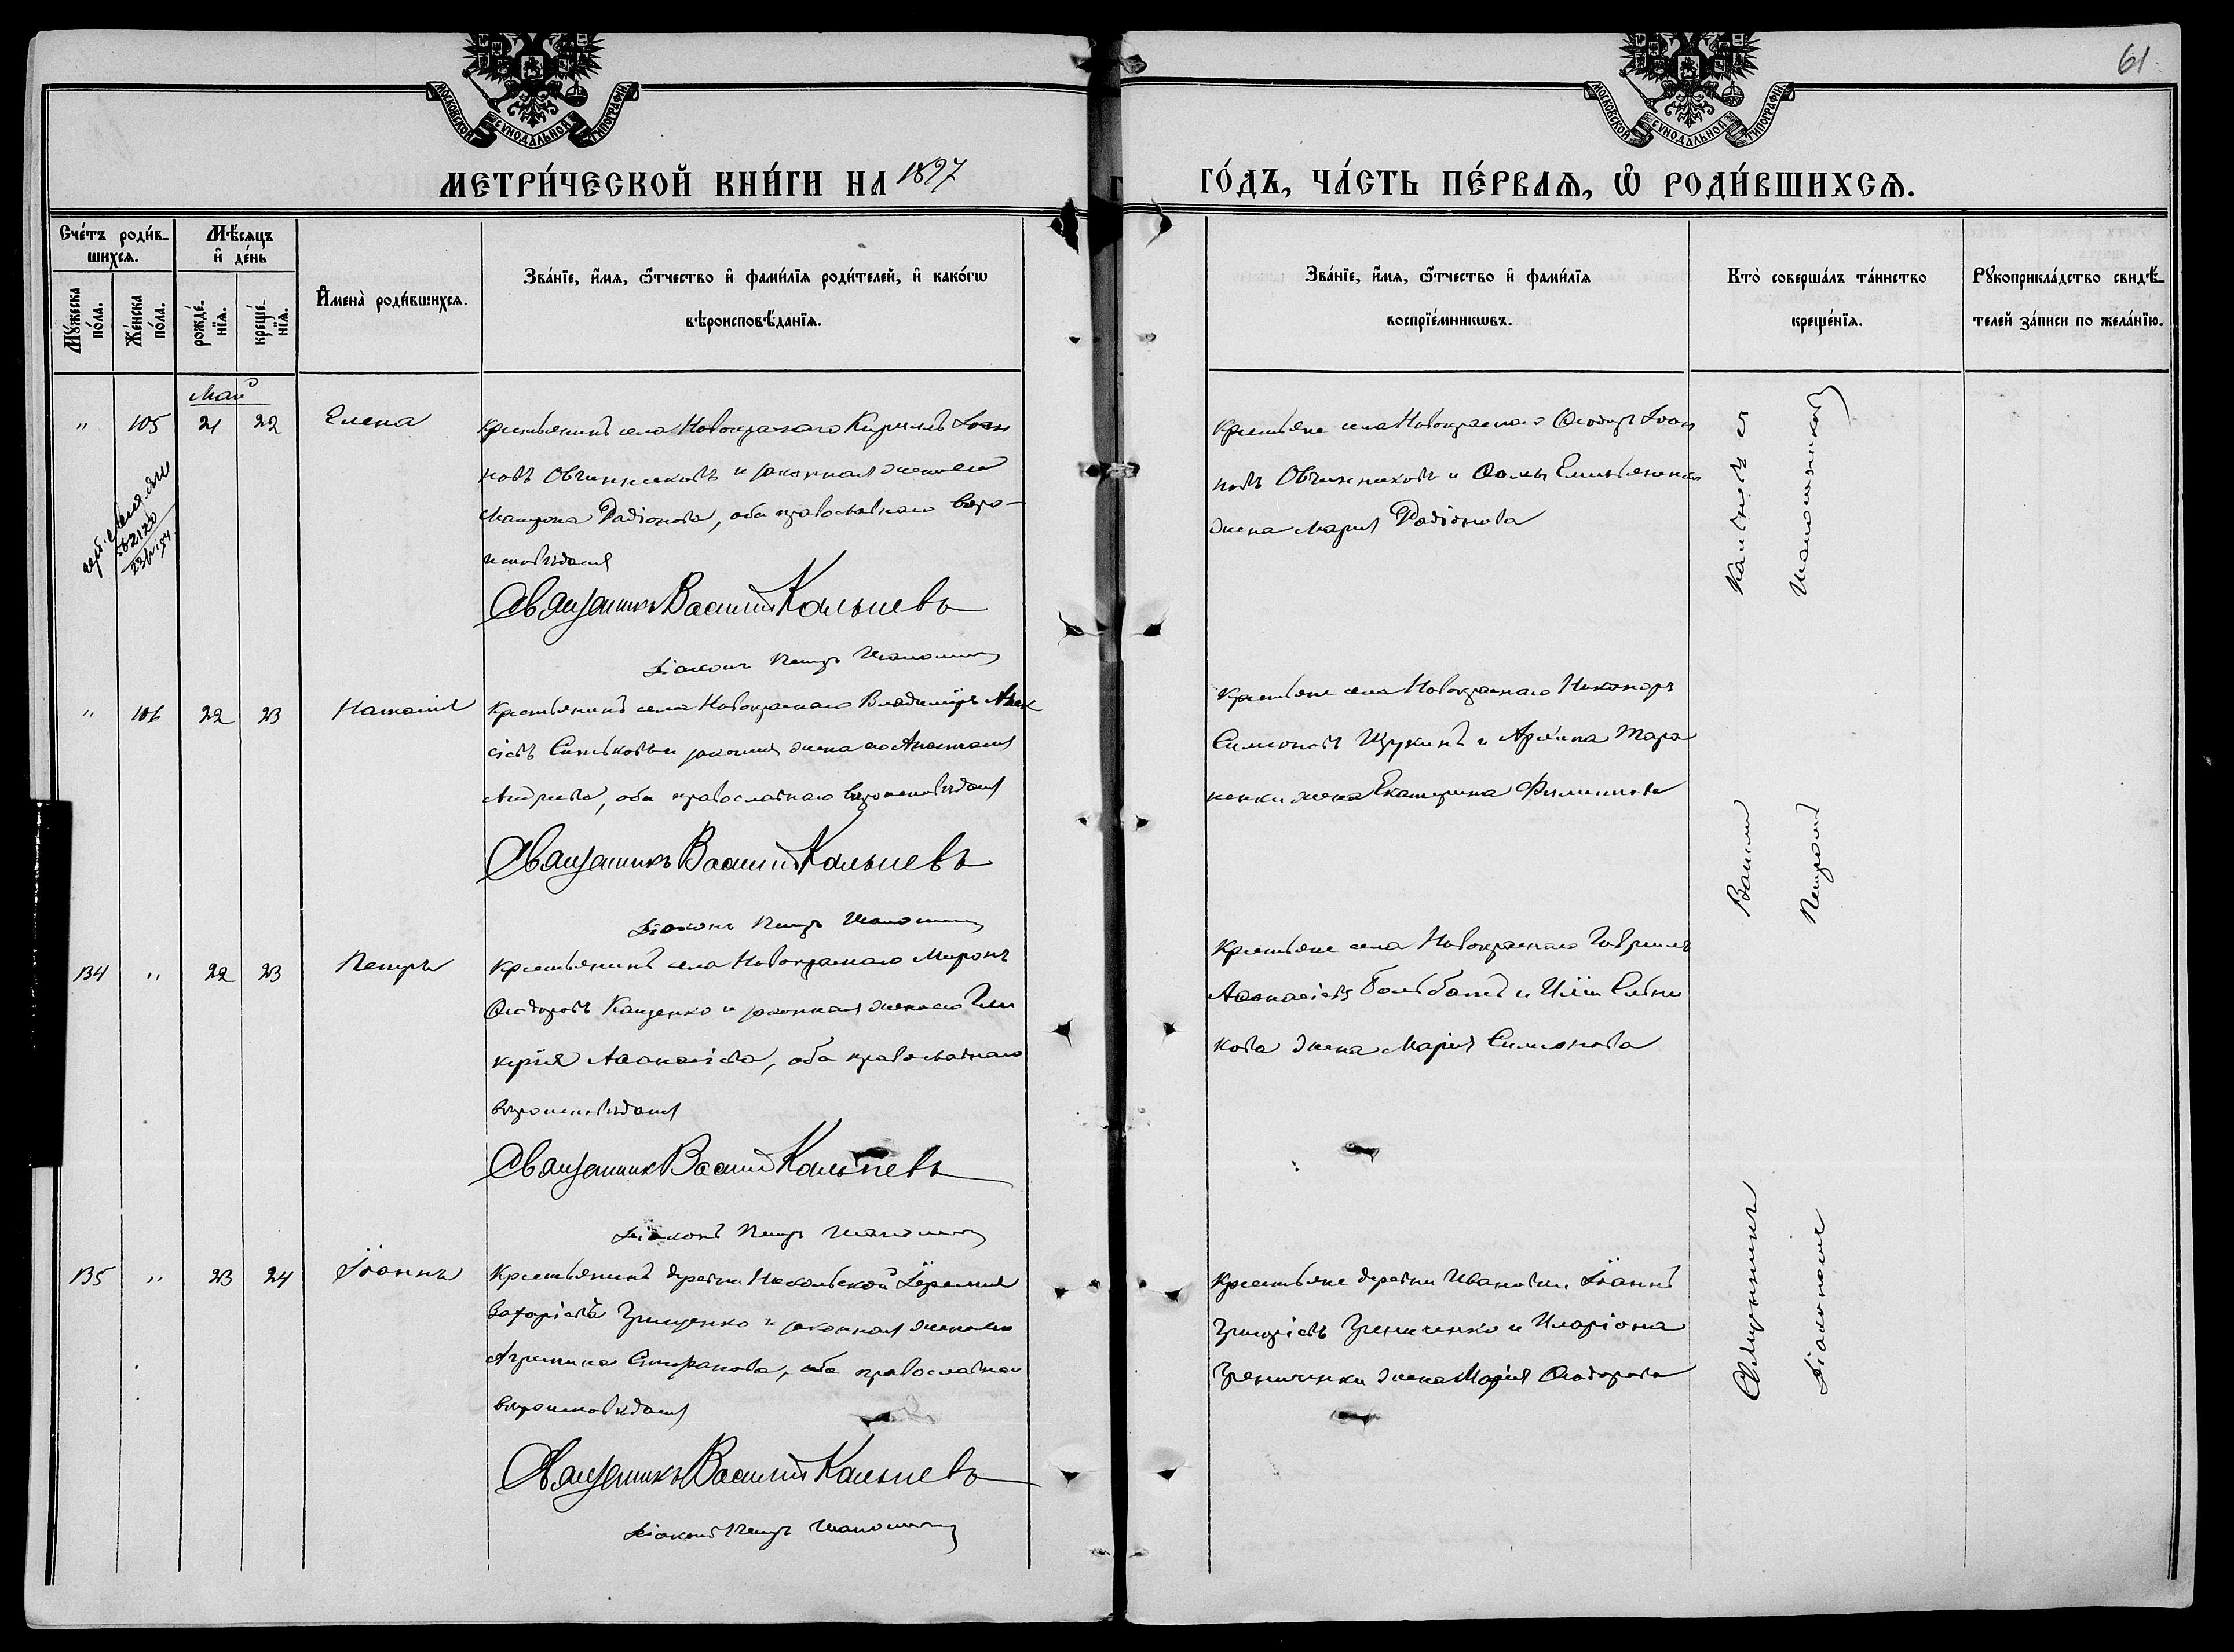 61.
МОСКОВСКОЙ СѴНОДАЛЬНОЙ ТИПОГРАФІИ
МОСКОВСКОЙ СѴНОДАЛЬНОЙ ТИПОГРАФІИ
МЕТРИ́ЧЕСКОЙ КНИ́ГИ НА 1897 ГО́ДЪ, ЧА́СТЬ ПЕ́РВАЯ, Ѡ҆ РОДИ́ВШИХСЯ.
Сче́тъ роди́в-
шихся.
Мѣ́сяцъ
и҆ де́нь
Мꙋ́жеска по́ла.
Же́нска по́ла.
рожде́-
нїя.
креще́-
нїя.
И҆мена̀ роди́вшихся.
Зва́нїе, и҆́мя, ѻ҆́тчество и҆ фами́лїя роди́телей, и҆ како́гѡ
вѣроисповѣ́данїя.
Зва́нїе, и҆́мя, ѻ҆́тчество и҆ фами́лїя
воспрїе́мникѡвъ.
Кто̀ соверша́лъ та́инство
креще́нїя.
Рꙋкоприкла́дство свидѣ́-
телей за́писи по жела́нїю.
Май
" 105 21 22 Елена
Крестьянинъ села Новокраснаго Кириллъ Іоан
новъ Овчинниковъ и законная жена его
Матрона Родіонова, оба православнаго веро-
исповѣданія
Священникъ Василій Кальневъ
Діаконъ Петръ
Крестьяне села Новокраснаго Ѳеодоръ Іоан
новъ Овчинниковъ и Ѳомы Емельяненка
жена Марія Родіонова
" 106 22 23 Наталія
Крестьянинъ села Новокраснаго Владиміръ Алек
сіевъ Ситьковъ и законная жена его Анастасія
Андреева, оба православнаго вѣроисповѣданія
Священникъ Василій Кальневъ
Діаконъ Петръ
Крестьяне села Новокраснаго Никаноръ
Симеоновъ Щукинъ и Архипа Тара
ненки жена Екатерина Филиппова
134 " 22 23 Петръ
Крестьянинъ села Новокраснаго Миронъ
Ѳеодоровъ Кащенко и законная жена его Гли
керія Аѳанасіева, оба православнаго
вѣроисповѣданія
Священникъ Василій Кальневъ
Діаконъ Петръ
Крестьяне села Новокраснаго Гавріилъ
Аѳанасіевъ и Иліи
кова жена Марія Симеонова
135 " 23 24 Іоаннъ
Крестьянинъ деревни Никольской Іеремія
Захаріевъ Грищенко и законная жена его
Агрипина Стефанова, оба православнаго
вѣроисповѣданія
Священникъ Василій Кальневъ
Діаконъ Петръ
Крестьяне деревни Ивановки Іоаннъ
Григоріевъ Гречиченко и Иларіона
Гречиченки жена Марія Ѳеодорова
Священникъ Василій Кальневъ
Діаконъ Петръ